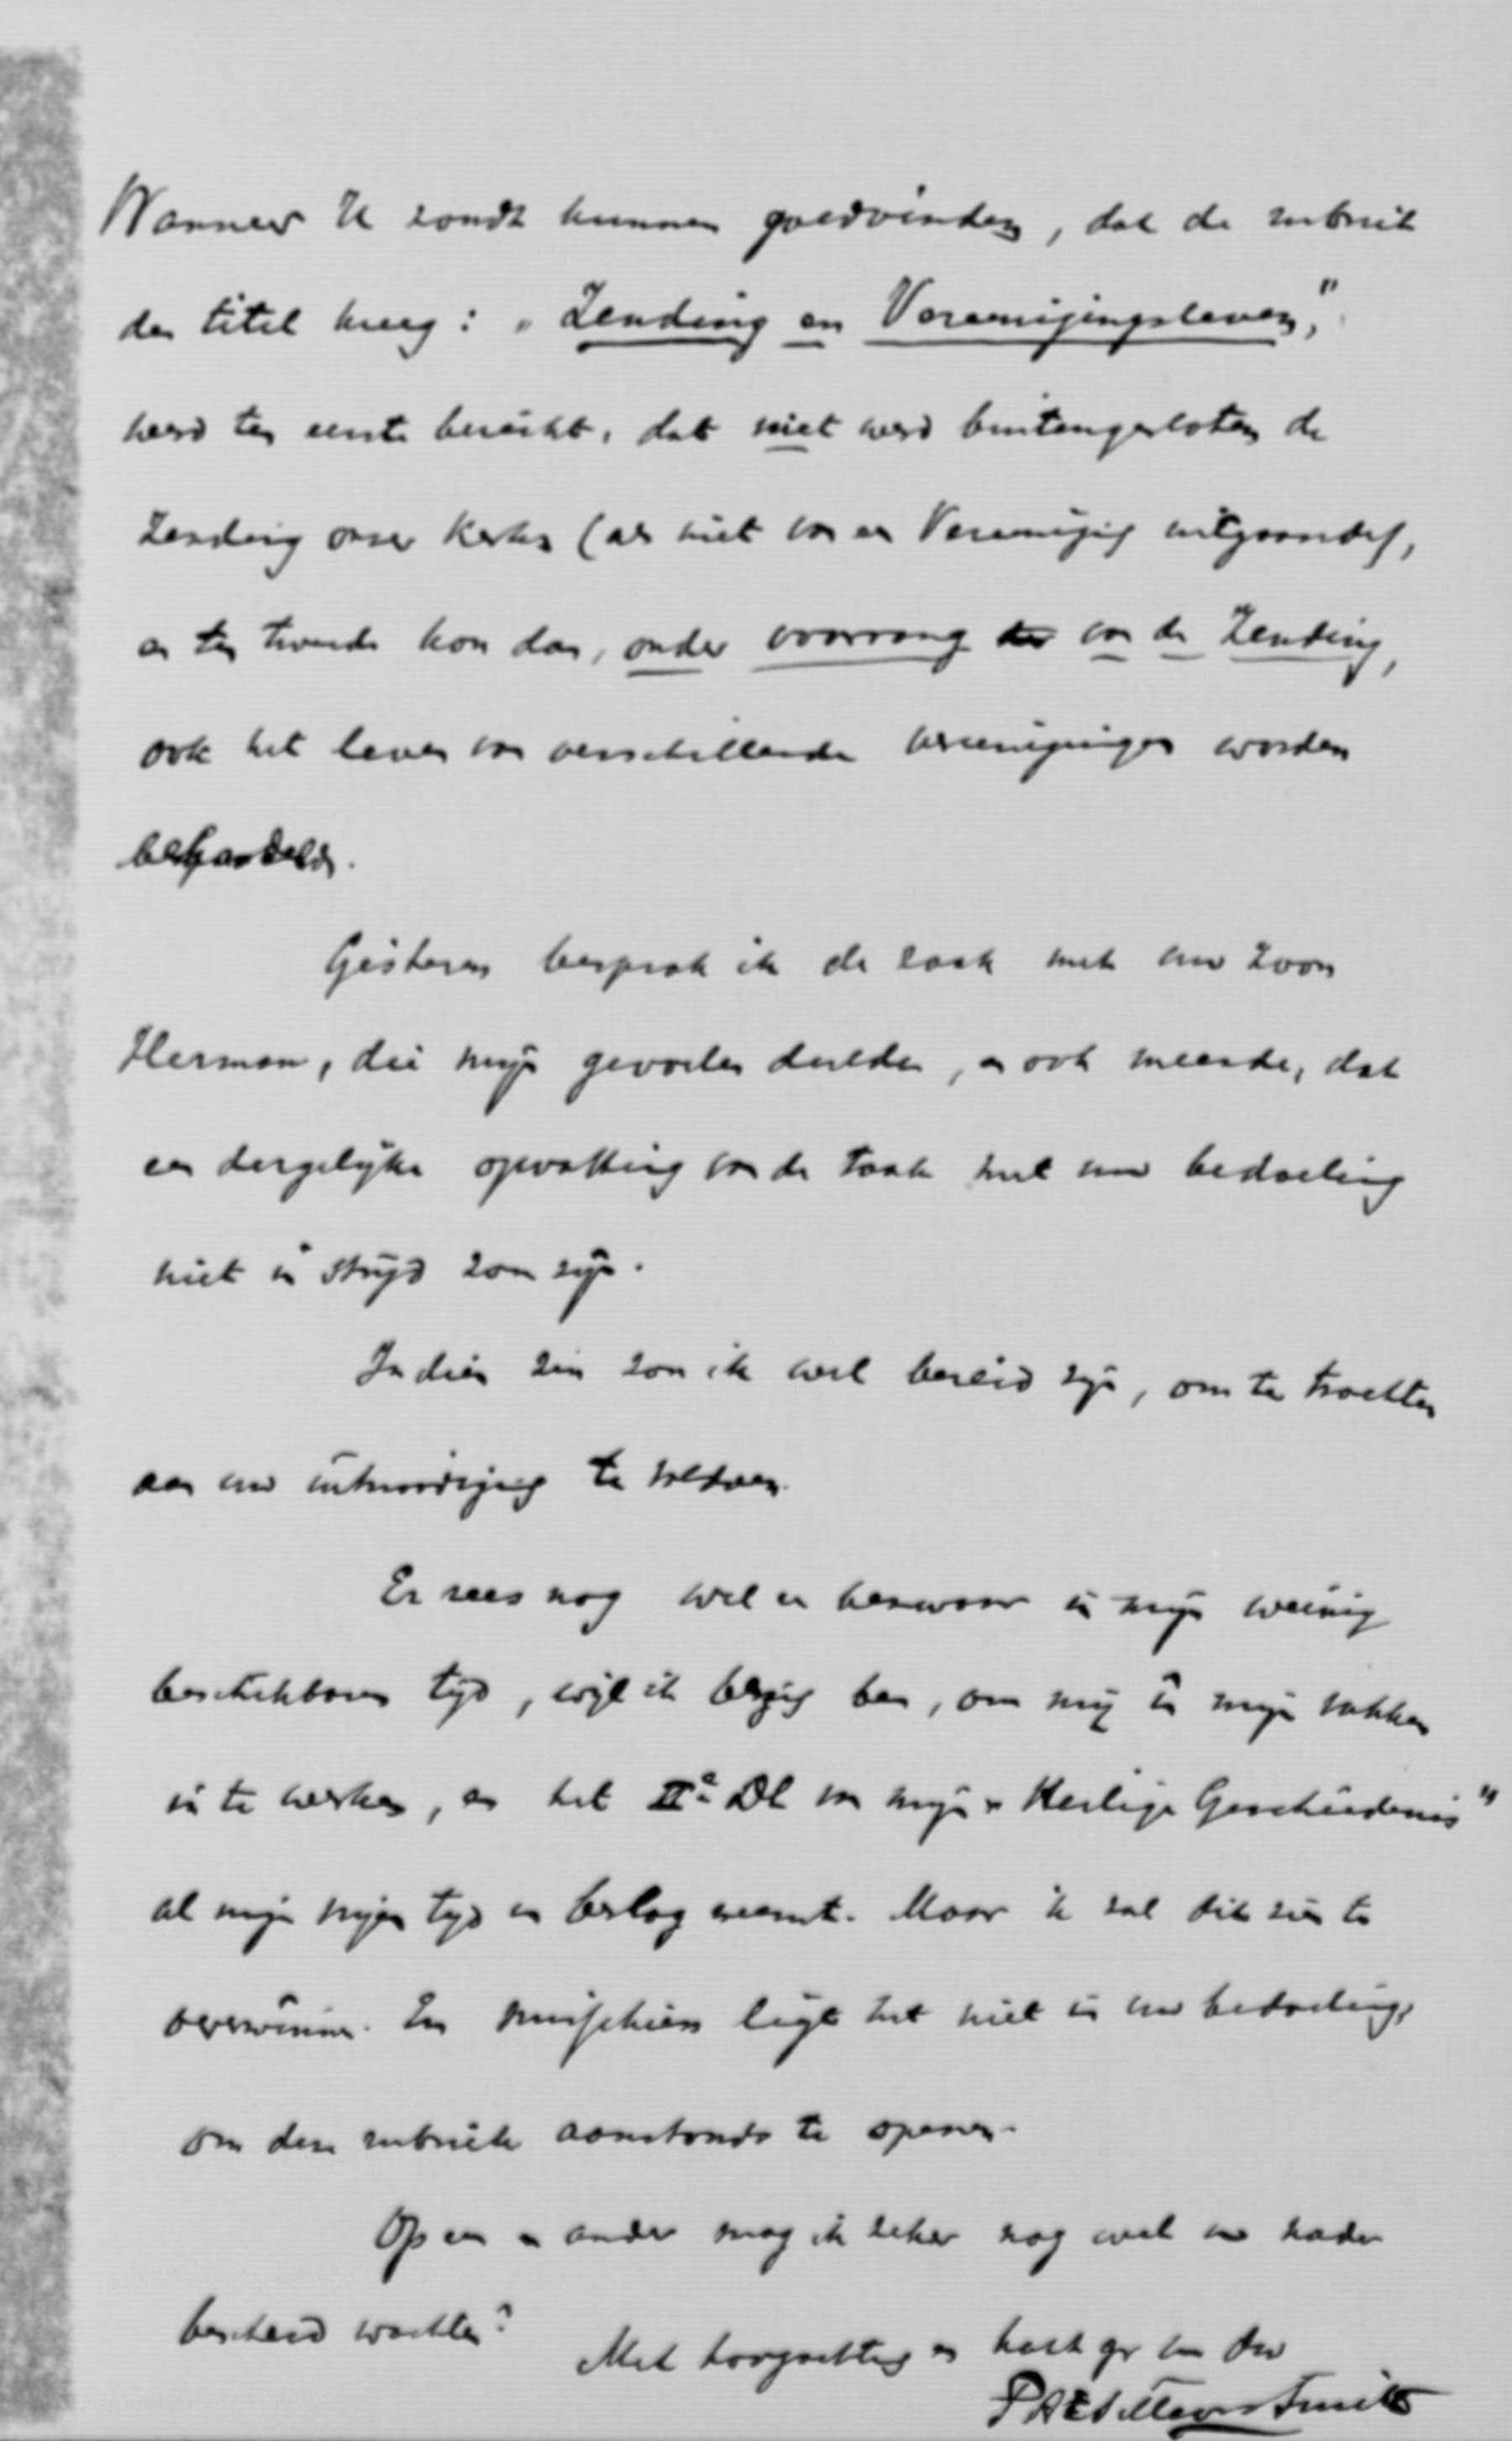 Wanneer U zoudt kunnen goedvinden, dat de rubriek
den titel kreeg: „Zending en Vereenigingsleven,"
werd ten eerste bereikt, dat niet werd buitengesloten de
Zending onzer Kerken (als niet van een Vereeniging uitgaande),
en ten tweede kon dan, onder voorrang der van de Zending,
ook het leven van verschillende vereenigingen worden
behandeld.
Gisteren besprak ik de zaak met uw zoon
Herman, die mijn gevoelen deelde, en ook meende, dat
een dergelijke opvatting van de taak met uw bedoeling
niet in strijd zou zijn.
In dien zin zou ik wel bereid zijn, om te trachten
aan uw uitnoodiging te voldoen.
Er rees nog wel een bezwaar in mijn weinig
beschikbaren tijd, wijl ik bezig ben, om mij in mijn vakken
in te werken, en het IIe Dl van mijn „Heilige Geschiedenis"
al mijn vrijen tijd in beslag neemt. Maar ik zal dit zien te
overwinnen. En misschien ligt het niet in uw bedoeling,
om deze rubriek aanstonds te openen.
Op een en ander mag ik zeker nog wel uw nader
bescheid wachten?
Met hoogachting en hart. gr. van Uw
P A E Sillevis Smitt